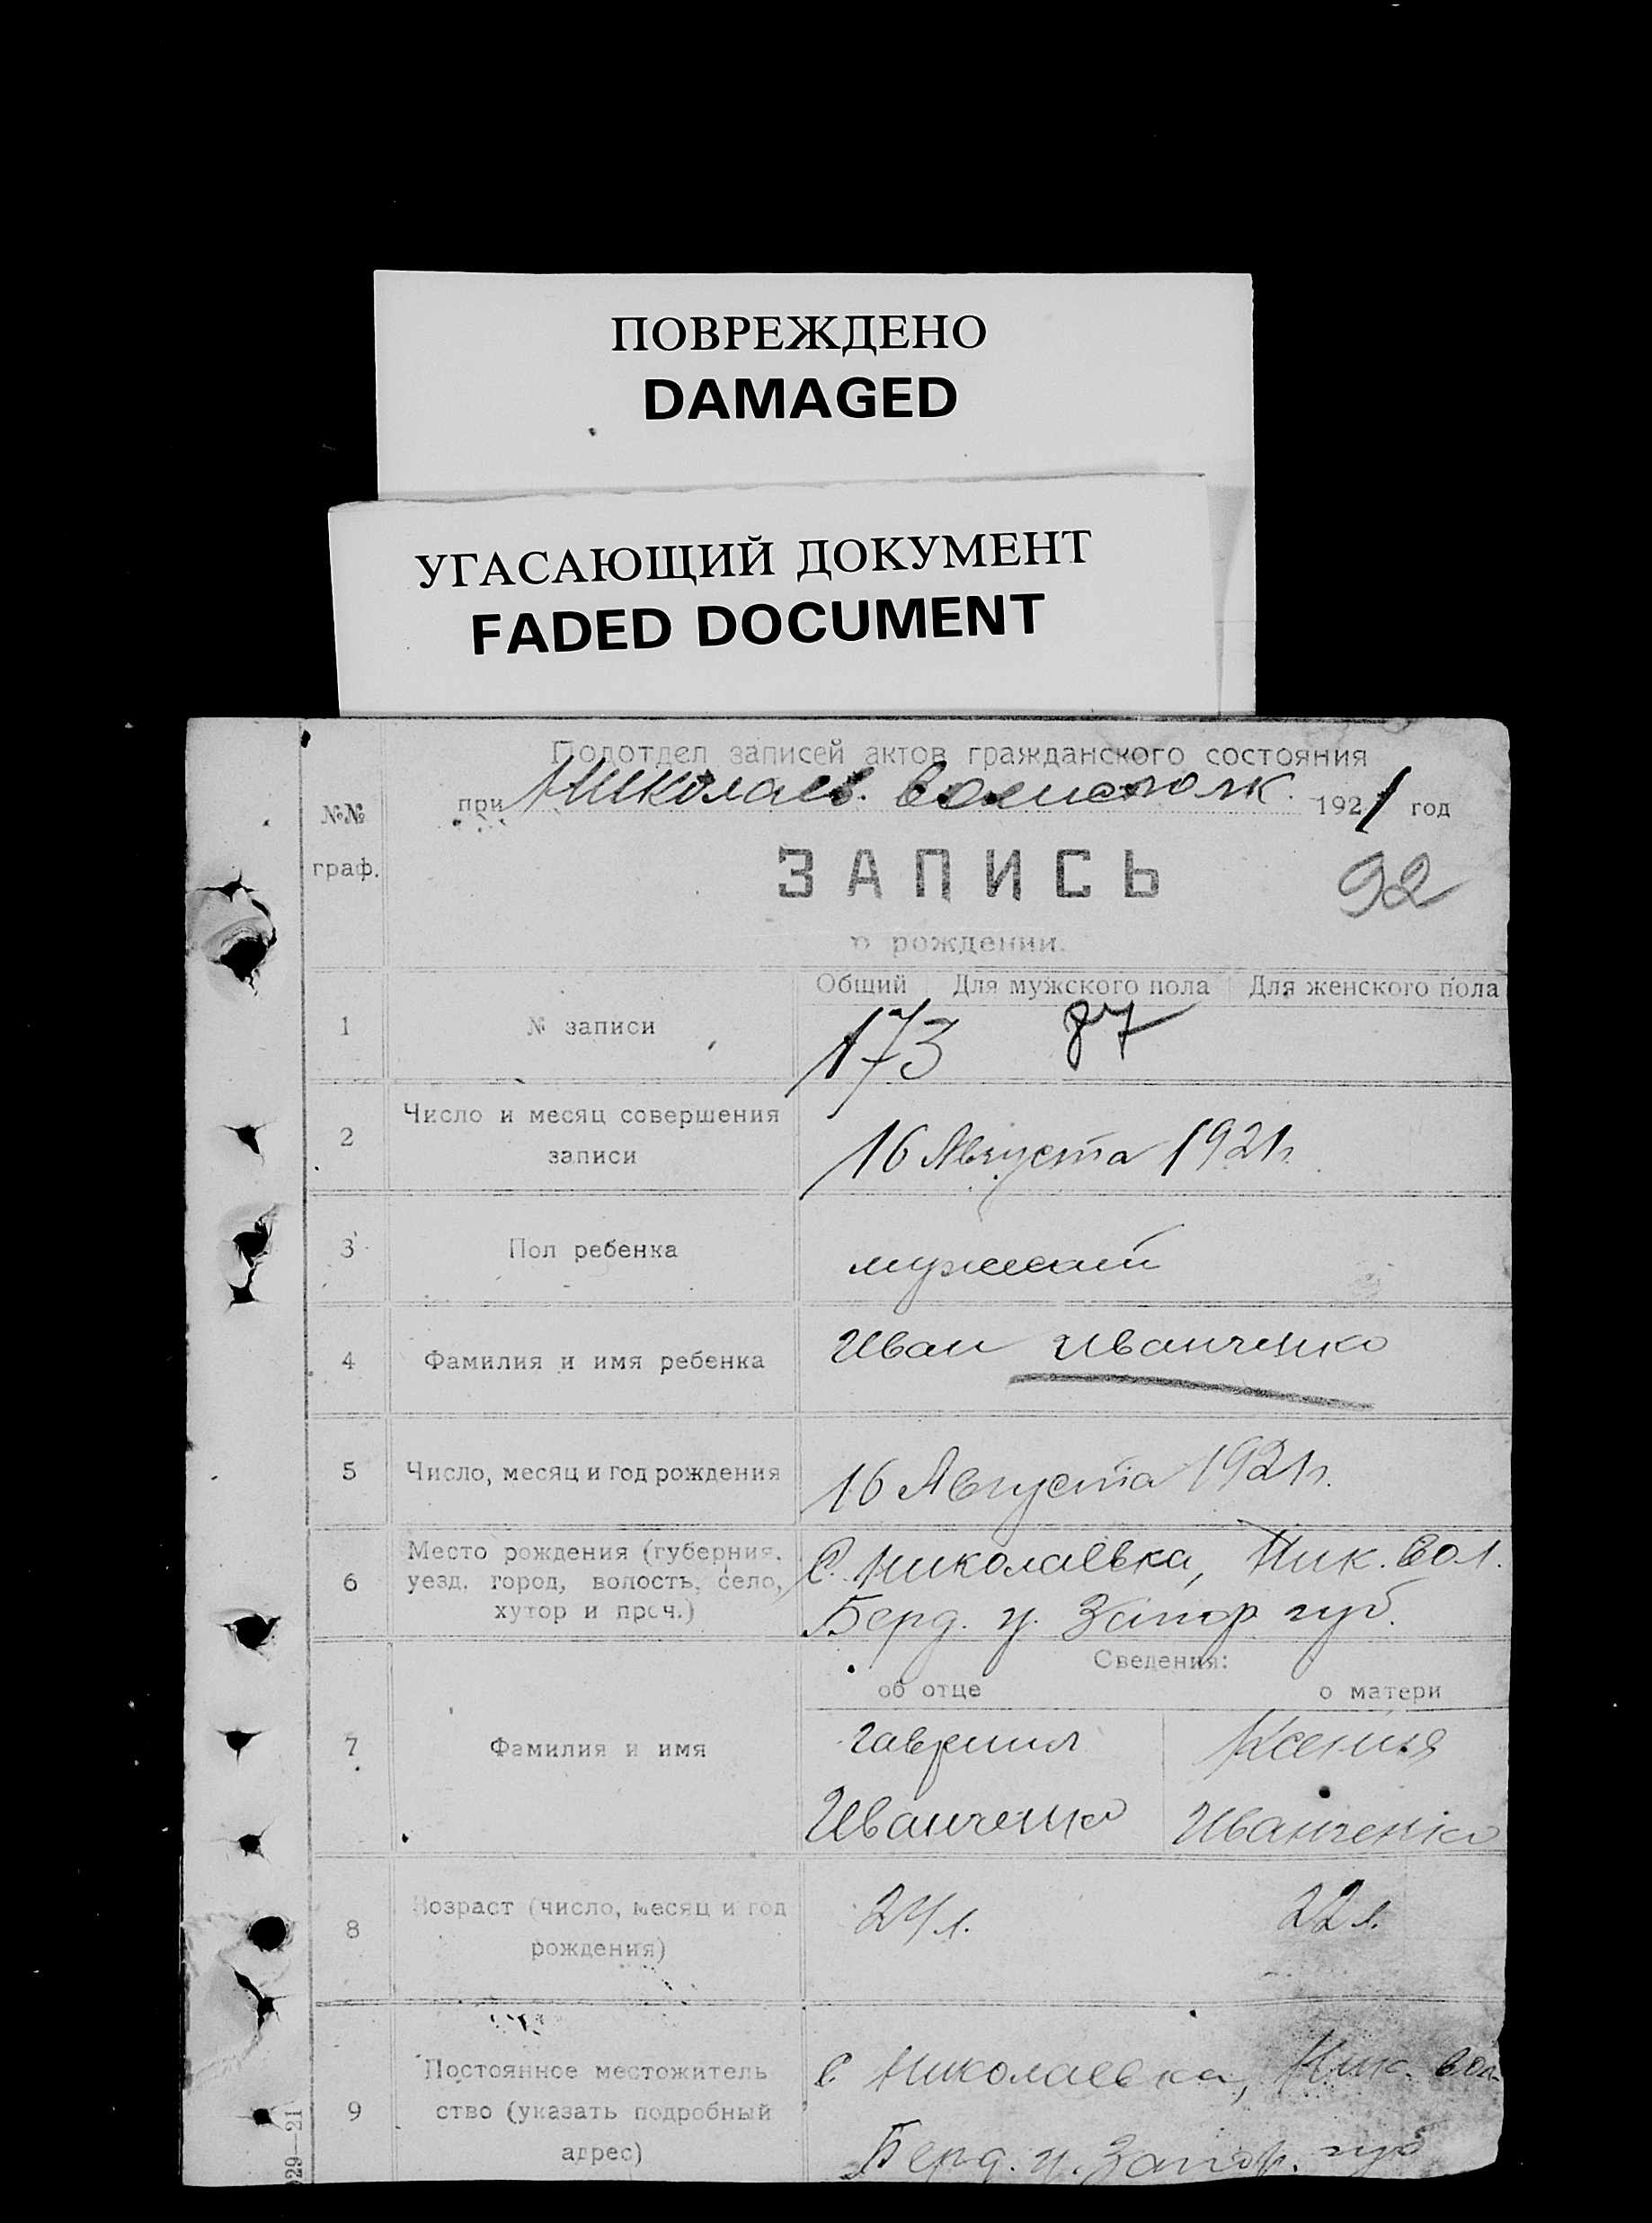 ПОВРЕЖДЕНО
DAMAGED
УГАСАЮЩИЙ ДОКУМЕНТ
FADED DOCUMENT
Подотдел записей актов гражданского состояния
при Николаев. 1921 год
№№
граф.
ЗАПИСЬ
92
о рождении.
Общий Для мужского пола Для женского пола
1 № записи 173 87
2 Число и месяц совершения
записи 16 Августа 1921г.
3 Пол ребенка
4 Фамилия и имя ребенка Иван Иванченко
5 Число, месяц и год рождения 16 Августа 1921г.
6 Место рождения (губерния, С. Николаевка, Ник. вол.
уезд, город, волость, село, Берд. у. Запор. губ.
хутор и проч.)
Сведения:
об отце о матери
7 Фамилия и имя Гавриил Ксения
Иванченко Иванченко
8 Возраст (число, месяц и год 24 л. 22 л.
рождения)
9 Постоянное местожитель С. Николаевка, Ник. вол.
ство (указать подробный
адрес) Берд. у. Запор. губ
29—21